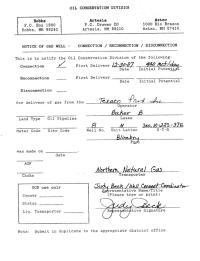 OIL CONSERVATION DIVISION
Hobbs Artesia Aztec
P.O. Box 1980 P.O. Drawer DD 1000 Rio Brazos
Hobbs, NM 88240 Artesia, NM 88210 Aztec, NM 87410
NOTICE OF GAS WELL - CONNECTION / RECONNECTION / DISCONNECTION
This is to notify the Oil Conservation Division of the following:
Connection First Delivery
Date Initial Potential
Reconnection First Delivery
Date Initial Potential
Disconnection
for delivery of gas from the Texaco
Operator
Baker B
Lease
Land Type Oil Pipeline
8 H Sec. 10-22S-37E
Meter Code Site Code Well No. Unit Letter S-T-R
Blinebry
Pool
was made on
date
AOF
Choke
Northern Natural Gas
Transporter
OCD use only
County
Status
Liq. Transporter
Judy Beck / Well Connect Coordinator
Representative Name/Title
(Please type or print)
Judy Beck
Representative Signature
Note: Submit in duplicate to the appropriate district office.